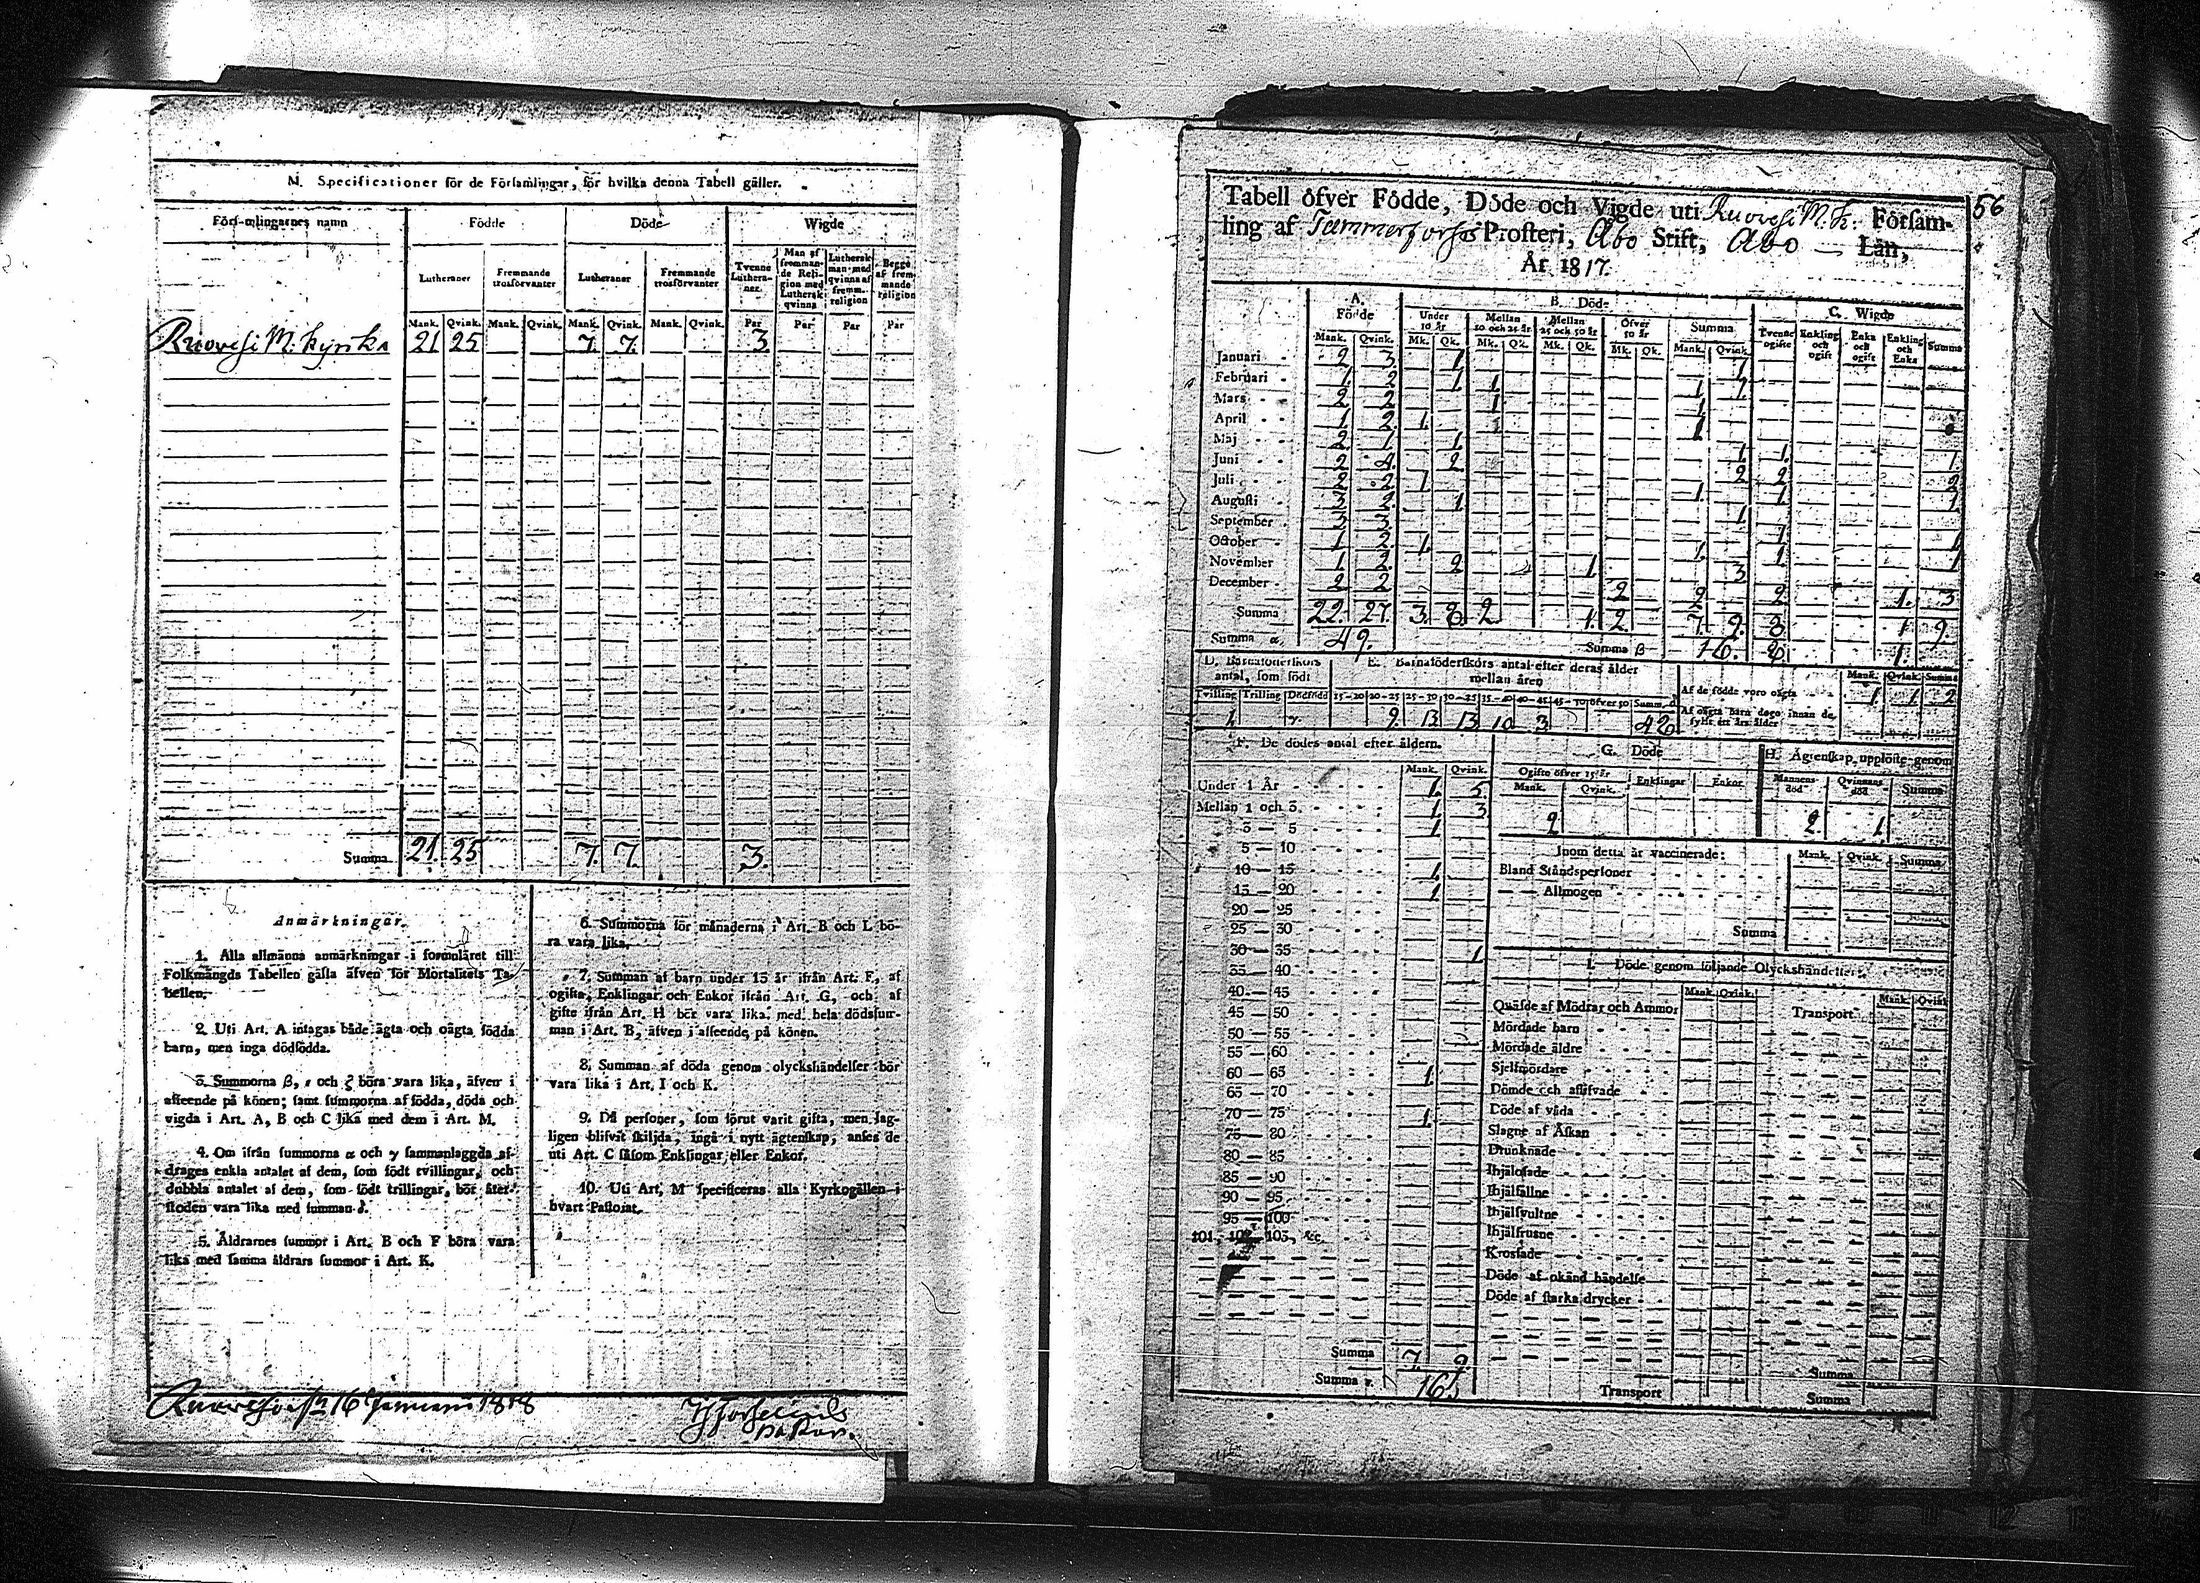 M. Specificationer för de Församlingar, för hvilka denna Tabell gäller.
Församlingarnes namn Födde Döde Wigde
Lutheraner Fremmande trosförvanter Lutheraner Fremmande trosförvanter Tvenne Lutheraner. Man af fremmande Religion med Luthersk qvinna Luthersk man med qvinna af fremm. religion Begge af fremmande religion
Mank. Qvink. Mank. Qvink. Mank. Qvink. Mank. Qvink. Par Par Par Par
Ruovesi M. kyrka 21 25 7. 7. 3.
Summa 21. 25 7. 7. 3.
Anmärkningar.
1. Alla allmänna anmärkningar i formuläret till
Folkmängds Tabellen gälla äfven för Mortalitets Ta-
bellen.
2. Uti Art. A intagas både ägta och oägta födda
barn, men inga dödfödda.
3. Summorna β, ε och ζ böra vara lika, äfven i
afseende på könen; samt summorna af födda, döda och
vigda i Art. A, B och C lika med dem i Art. M.
4. Om ifrån summorna α och γ sammanlaggda af-
drages enkla antalet af dem, som födt tvillingar, och
dubbla antalet af dem, som födt trillingar, bör åter-
stoden vara lika med summan δ.
5. Åldrarnes summor i Art. B och F böra vara
lika med samma åldrars summor i Art. K.
6. Summorna för månaderna i Art. B och L bö-
ra vara lika.
7. Summan af barn under 15 år ifrån Art. F, af
ogifta, Enklingar och Enkor ifrån Art. G, och af
gifte ifrån Art. H bör vara lika med hela dödssum-
man i Art. B, äfven i afseende på könen.
8. Summan af döda genom olyckshändelser bör
vara lika i Art. I och K.
9. Då personer, som förut varit gifta, men lag-
ligen blifvit skiljda, ingå i nytt ägtenskap, anses de
uti Art. C såsom Enklingar eller Enkor.
10. Uti Art. M specificeras alla Kyrkogällen i
hvart Pastorat.
16 Januarii 1818
56
Tabell öfver Födde, Döde och Vigde uti Ruovesi M. k. Församling
ling af Tammerfors Prosteri, Åbo Stift, Åbo Län,
År 1817.
A. Födde B. Döde C. Wigde
Under 10 år Mellan 10 och 25 år Mellan 25 och 50 år Öfver 50 år Summa Tvenne ogifte Enkling och ogift Enka och ogift Enkling och Enka Summa
Mank. Qvink. Mk. Qk. Mk. Qk. Mk. Qk. Mk. Qk. Mank. Qvink.
Januari 2 3 1 1
Februari 1. 2 1 1 1 1
Mars 2 2 1 1
April 1 2 1. 1
Maj 2 1 1 1 1 1
Juni 2 4 2 2 2 2
Juli 2 2 1 1 1 1
Augusti 3 2 1 1
September 3 3 1 1
October 1 2 1. 1. 1 1
November 1 2. 2 1 3
December 2 2 2 2 2 1. 3
Summa 22. 27. 3. 8 2 1. 2. 7. 9. 8 1 9.
Summa α 49. Summa β 16. 8 1.
D. Barnaföderskors antal, som födt E. Barnaföderskors antal efter deras ålder mellan åren
Tvilling Trilling Dödfödd 15-20 20-25 25-30 30-35 35-40 40-45 45-50 öfver 50 Summ. δ
1. 9. 13 13 10 3
Mank. Qvink. Summa
Af de födde voro oägta 1. 1. 2
Af oägta barn dogo innan de fyllt ett års ålder
F. De dödes antal efter åldern.
Mank. Qvink.
Under 1 År 1. 5
Mellan 1 och 3. 1. 3
3 — 5 1
5 — 10
10 — 15 1.
15 — 20 1
20 — 25
25 — 30
30 — 35 1
35 — 40
40 — 45
45 — 50
50 — 55
55 — 60
60 — 65 1.
65 — 70
70 — 75 1.
75 — 80
80 — 85
85 — 90
90 — 95
95 — 100
101, 102, 103, &c.
Summa 7. 9.
Summa 16
G. Döde
Ogifte öfver 15 år Enklingar Enkor
Mank. Qvink.
2
H. Ägtenskap upplöste genom
Mannens död Qvinnans död Summa
2 1.
Inom detta år vaccinerade: Mank. Qvink. Summa
Bland Ståndspersoner
— Allmogen
Summa
I. Döde genom följande Olyckshändelser.
Mank. Qvink. Mank. Qvink.
Quäfde af Mödrar och Ammor Transport
Mördade barn
Mördade äldre
Sjelfmördare
Dömde och aflifvade
Döde af våda
Slagne af Åskan
Drunknade
Ihjälofade
Ihjälfällne
Ihjälsvultne
Ihjälfrusne
Krossade
Döde af okänd händelse
Döde af starka drycker
Summa
Transport Summa